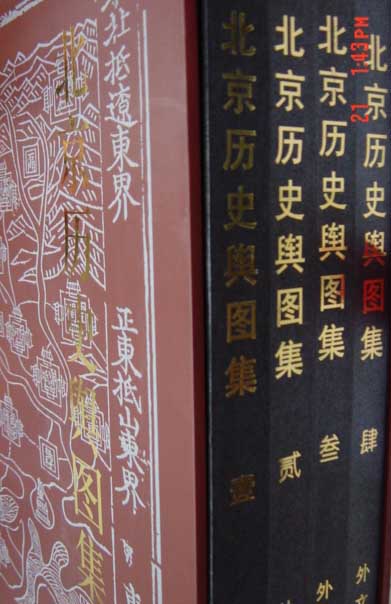 北京历史舆图集
东北抵辽東界
正東抵山東界
北京历史舆图集 壹
北京历史舆图集 贰
北京历史舆图集 叁
外
北京历史舆图集 肆
外文
21 1:43PM